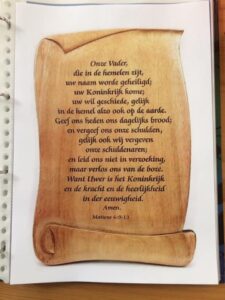 Onze Vader,
die in de hemelen zijt,
uw naam worde geheiligd;
uw Koninkrijk kome;
uw wil geschiede, gelijk
in de hemel alzo ook op de aarde.
Geef ons heden ons dagelijks brood;
en vergeef ons onze schulden,
gelijk ook wij vergeven
onze schuldenaren;
en leid ons niet in verzoeking,
maar verlos ons van de boze.
Want Uwer is het Koninkrijk
en de kracht en de heerlijkheid
in der eeuwigheid.
Amen.
Matteüs 6:9-13